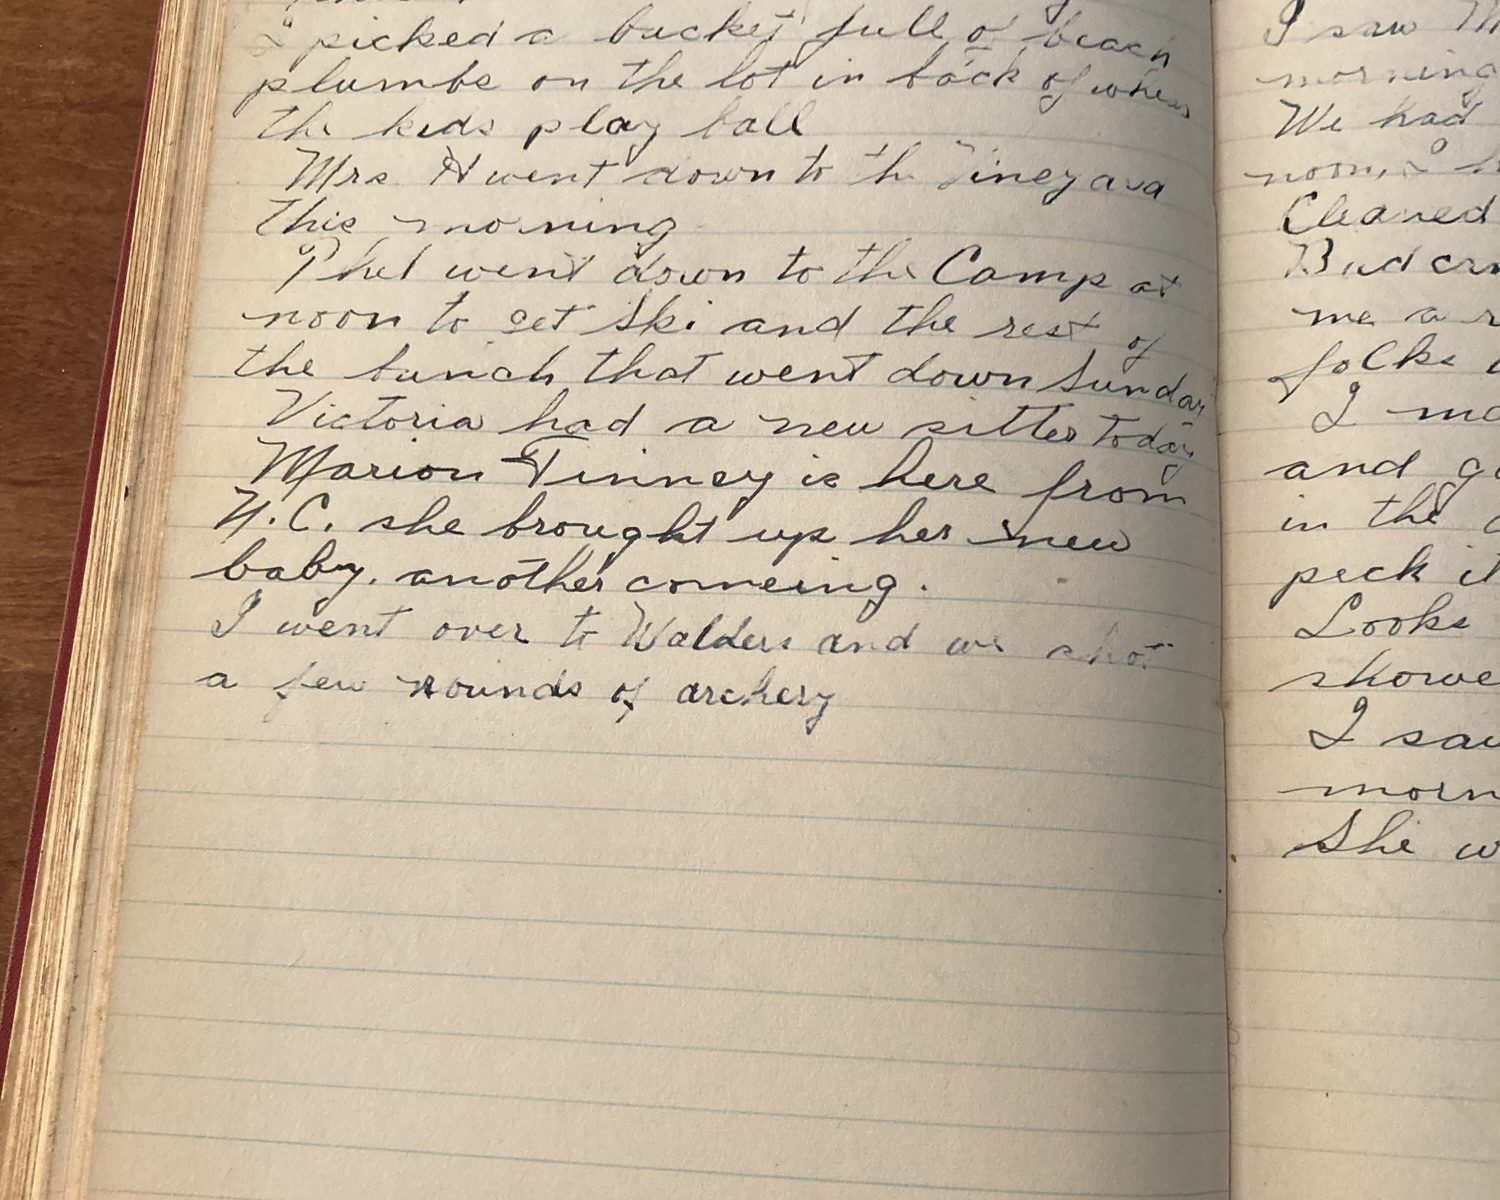 I picked a bucket full of beach
plumbs on the lot in back of where
the kids play ball
Mrs. H went down to th Vineyard
this morning
Phil went down to the Camp at
noon to get Ski and the rest of
the bunch that went down Sunday
Victoria had a new sitter today
Marion Tinney is here from
N.C. she brought up her new
baby. another comeing.
I went over to Walders and we shot
a few rounds of archery
I saw
morning
We had
noon, I
Cleaned
Bud
me a
folks
I
and
in the
peck it
Looks
showe
I saw
morn
She w